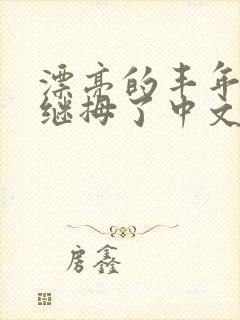 漂亮的丰年
继拇了中文
房鑫